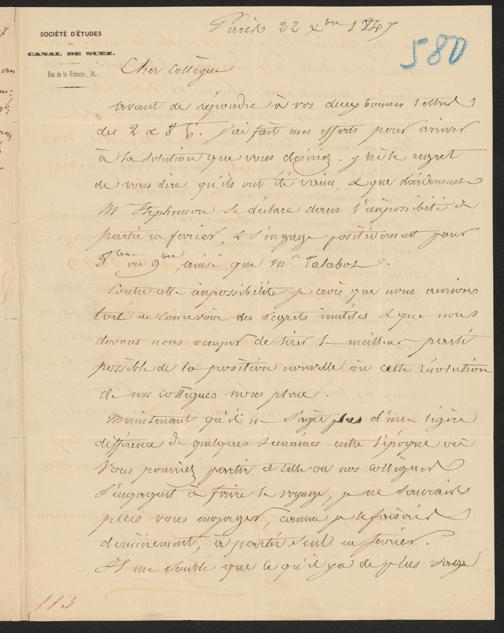 SOCIÉTÉ D'ÉTUDES
CANAL DE SUEZ.
Rue de la Victoire, 34.
Paris 22 Xbre 1847
580
Cher Collègue
Avant de répondre à vos deux bonnes lettres
des 2 & 8 Ct. j'ai fait mes efforts pour arriver
à la solution que vous désiriez. j'ai le regret
de vous dire qu'ils ont été vains, & que
Mr Stephenson se déclare dans l'impossibilité de
partir en février, & s'engage positivement pour
8bre ou 9bre, ainsi que Mr Talabot.
Contre cette impossibilité je crois que nous aurions
tort de concevoir des regrets inutiles & que nous
devons nous occuper de tirer le meilleur parti
possible de la position nouvelle où cette résolution
de nos collègues nous place.
Maintenant qu'il ne s'agit plus d'une légère
différence de quelques semaines entre l'époque où
vous pourriez partir et celle où nos collègues
s'engagent à faire le voyage, je ne saurais
plus vous engager, comme je le faisais
dernièrement, à partir seul en février.
Il me semble que ce qu'il y a de plus sage
113